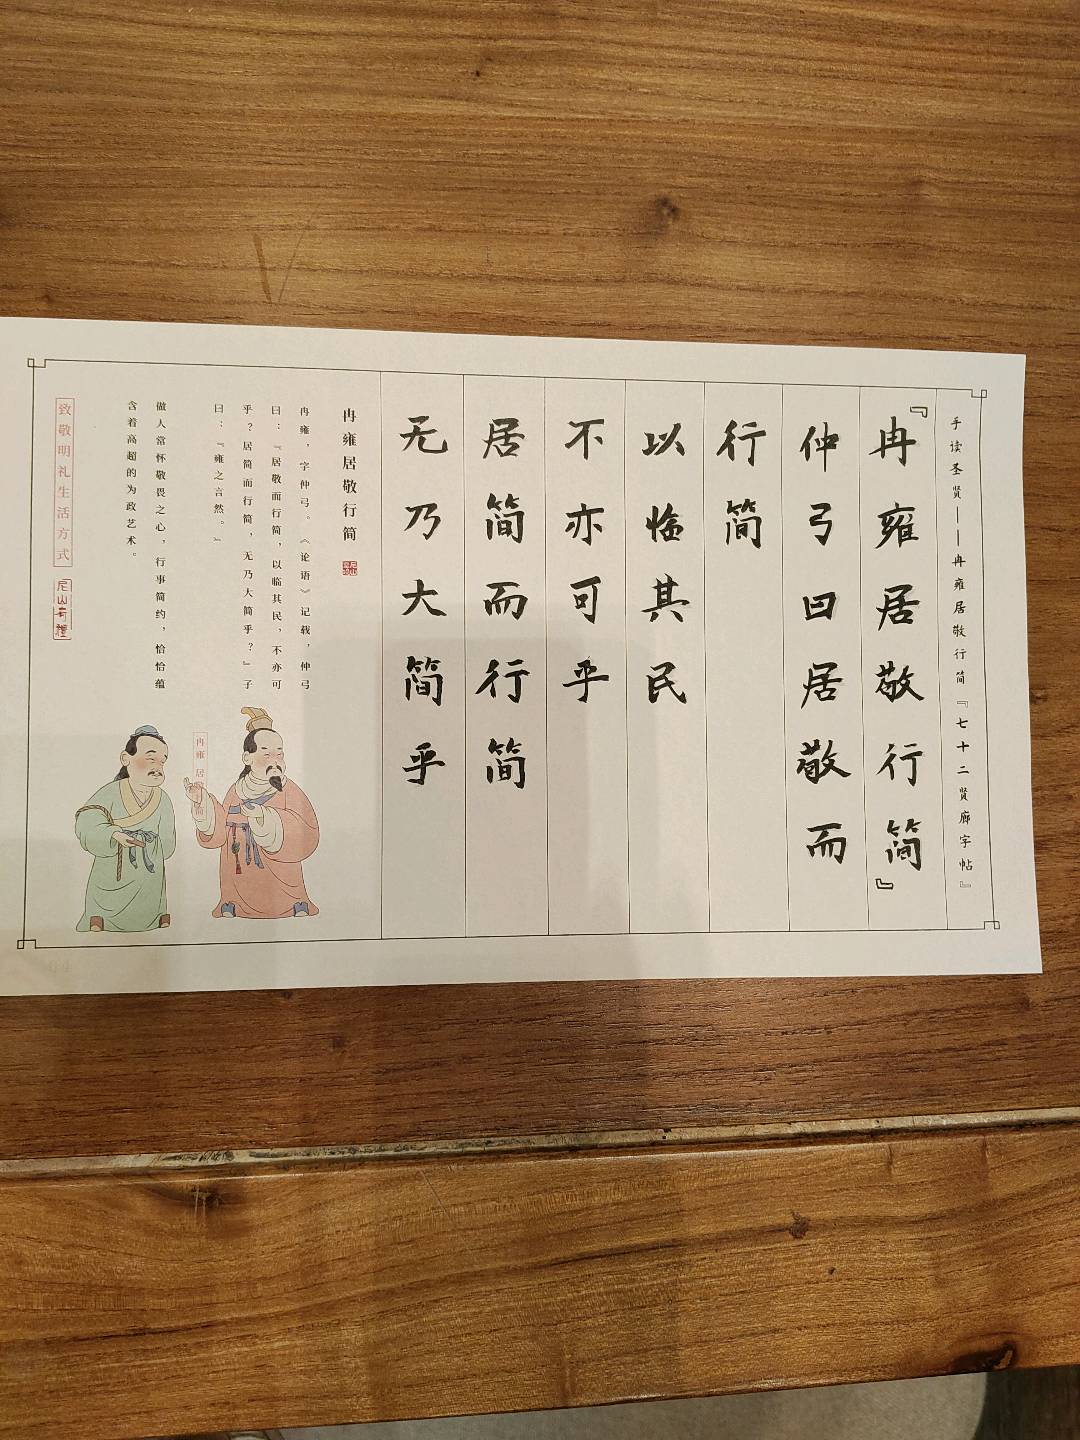 手读圣贤——冉雍居敬行简『七十二贤廊字帖』
『冉雍居敬行简』
仲弓曰居敬而
行简
以临其民
不亦可乎
居简而行简
无乃大简乎
冉雍居敬行简
冉雍，字仲弓。《论语》记载，仲弓
曰：『居敬而行简，以临其民，不亦可
乎？居简而行简，无乃大简乎？』子
曰：『雍之言然。』
做人常怀敬畏之心，行事简约，恰恰蕴
含着高超的为政艺术。
冉雍 居敬行简
致敬明礼生活方式
尼山有礼